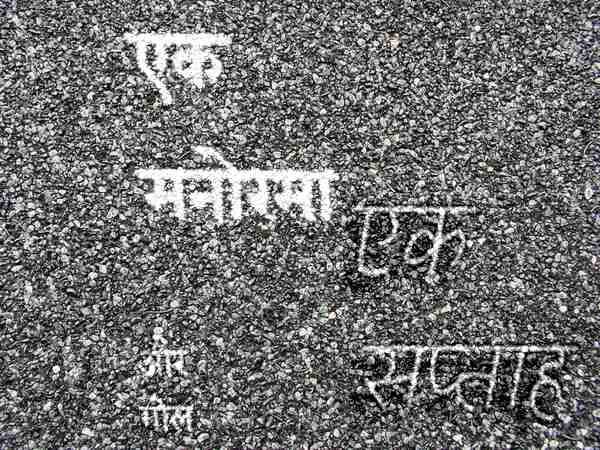 एक
मनोरमा
एक
सप्ताह
और